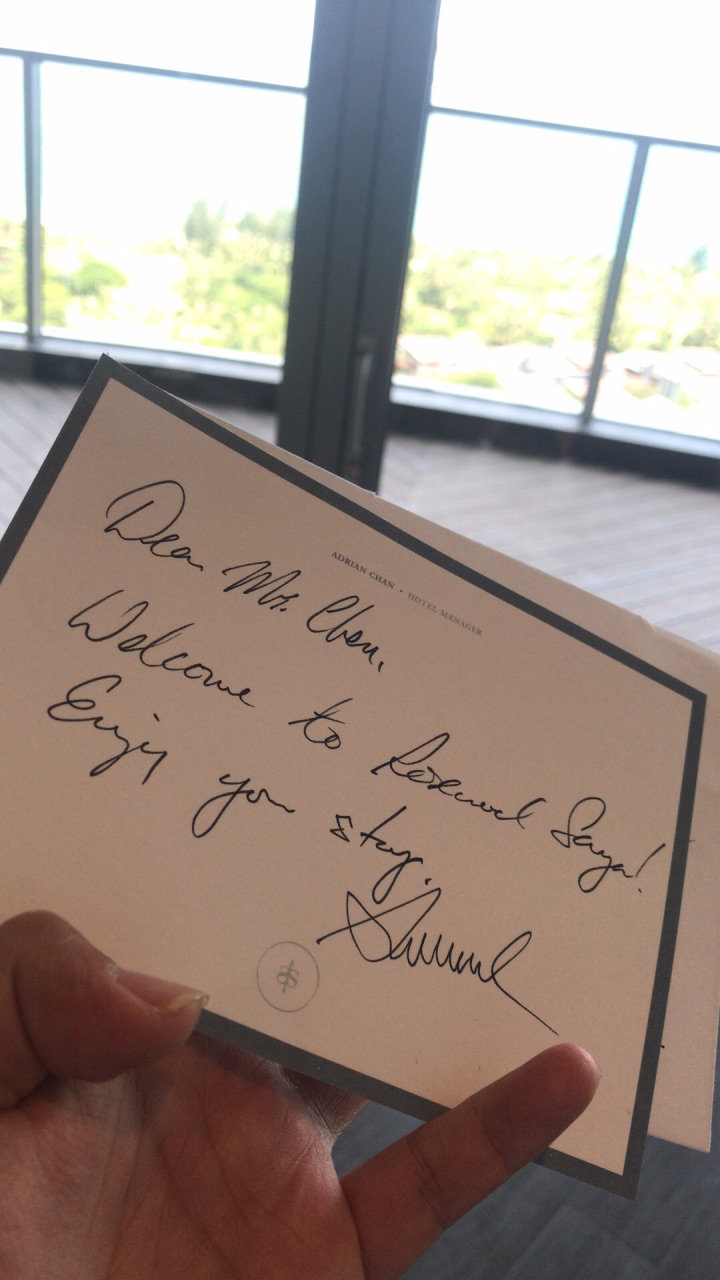 ADRIAN CHAN · HOTEL MANAGER
Dear Mr. Chen,
Welcome to Rosewood Sanya!
Enjoy your stay.